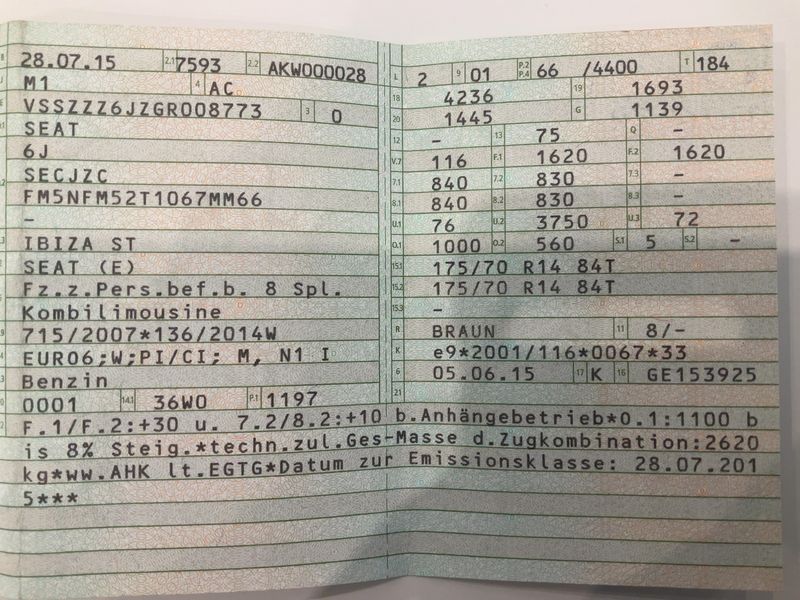 B 28.07.15 2.1 7593 2.2 AKW000028
J M1 4 AC
E VSSZZZ6JZGR008773 3 0
SEAT
6J
SECJZC
FM5NFM52T1067MM66
–
IBIZA ST
SEAT (E)
Fz.z.Pers.bef.b. 8 Spl.
Kombilimousine
715/2007*136/2014W
EURO6;W;PI/CI; M, N1 I
Benzin
0001 14.1 36W0 P.1 1197
L 2 9 01 P.2 P.4 66 /4400 T 184
18 4236 19 1693
20 1445 G 1139
12 – 13 75 Q –
V.7 116 F.1 1620 F.2 1620
7.1 840 7.2 830 7.3 –
8.1 840 8.2 830 8.3 –
U.1 76 U.2 3750 U.3 72
O.1 1000 O.2 560 S.1 5 S.2 –
15.1 175/70 R14 84T
15.2 175/70 R14 84T
15.3 –
R BRAUN 11 8/-
K e9*2001/116*0067*33
6 05.06.15 17 K 16 GE153925
21
F.1/F.2:+30 u. 7.2/8.2:+10 b.Anhängebetrieb*0.1:1100 b
is 8% Steig.*techn.zul.Ges-Masse d.Zugkombination:2620
kg*ww.AHK lt.EGTG*Datum zur Emissionsklasse: 28.07.201
5***